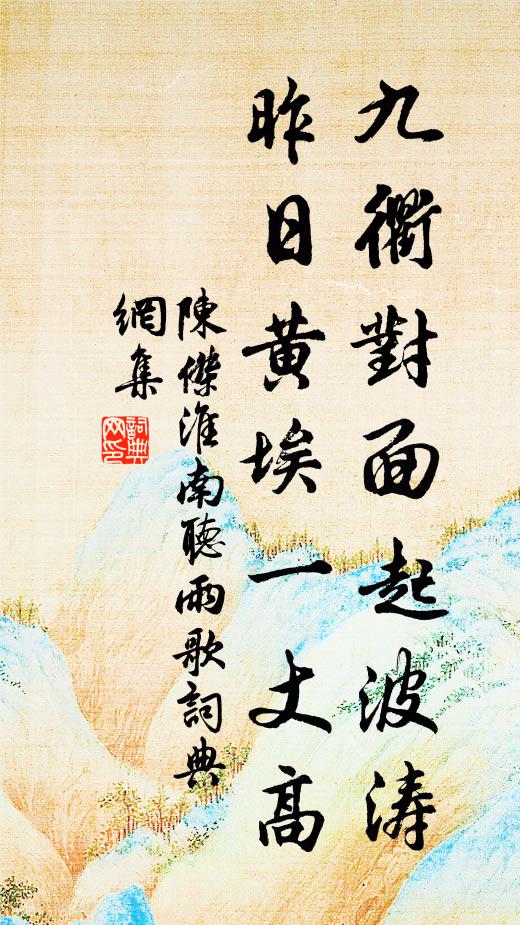 九衢對面起波涛
昨日黄埃一丈高
陳傑淮南聽雨歌詞典
網集
詞典
网印